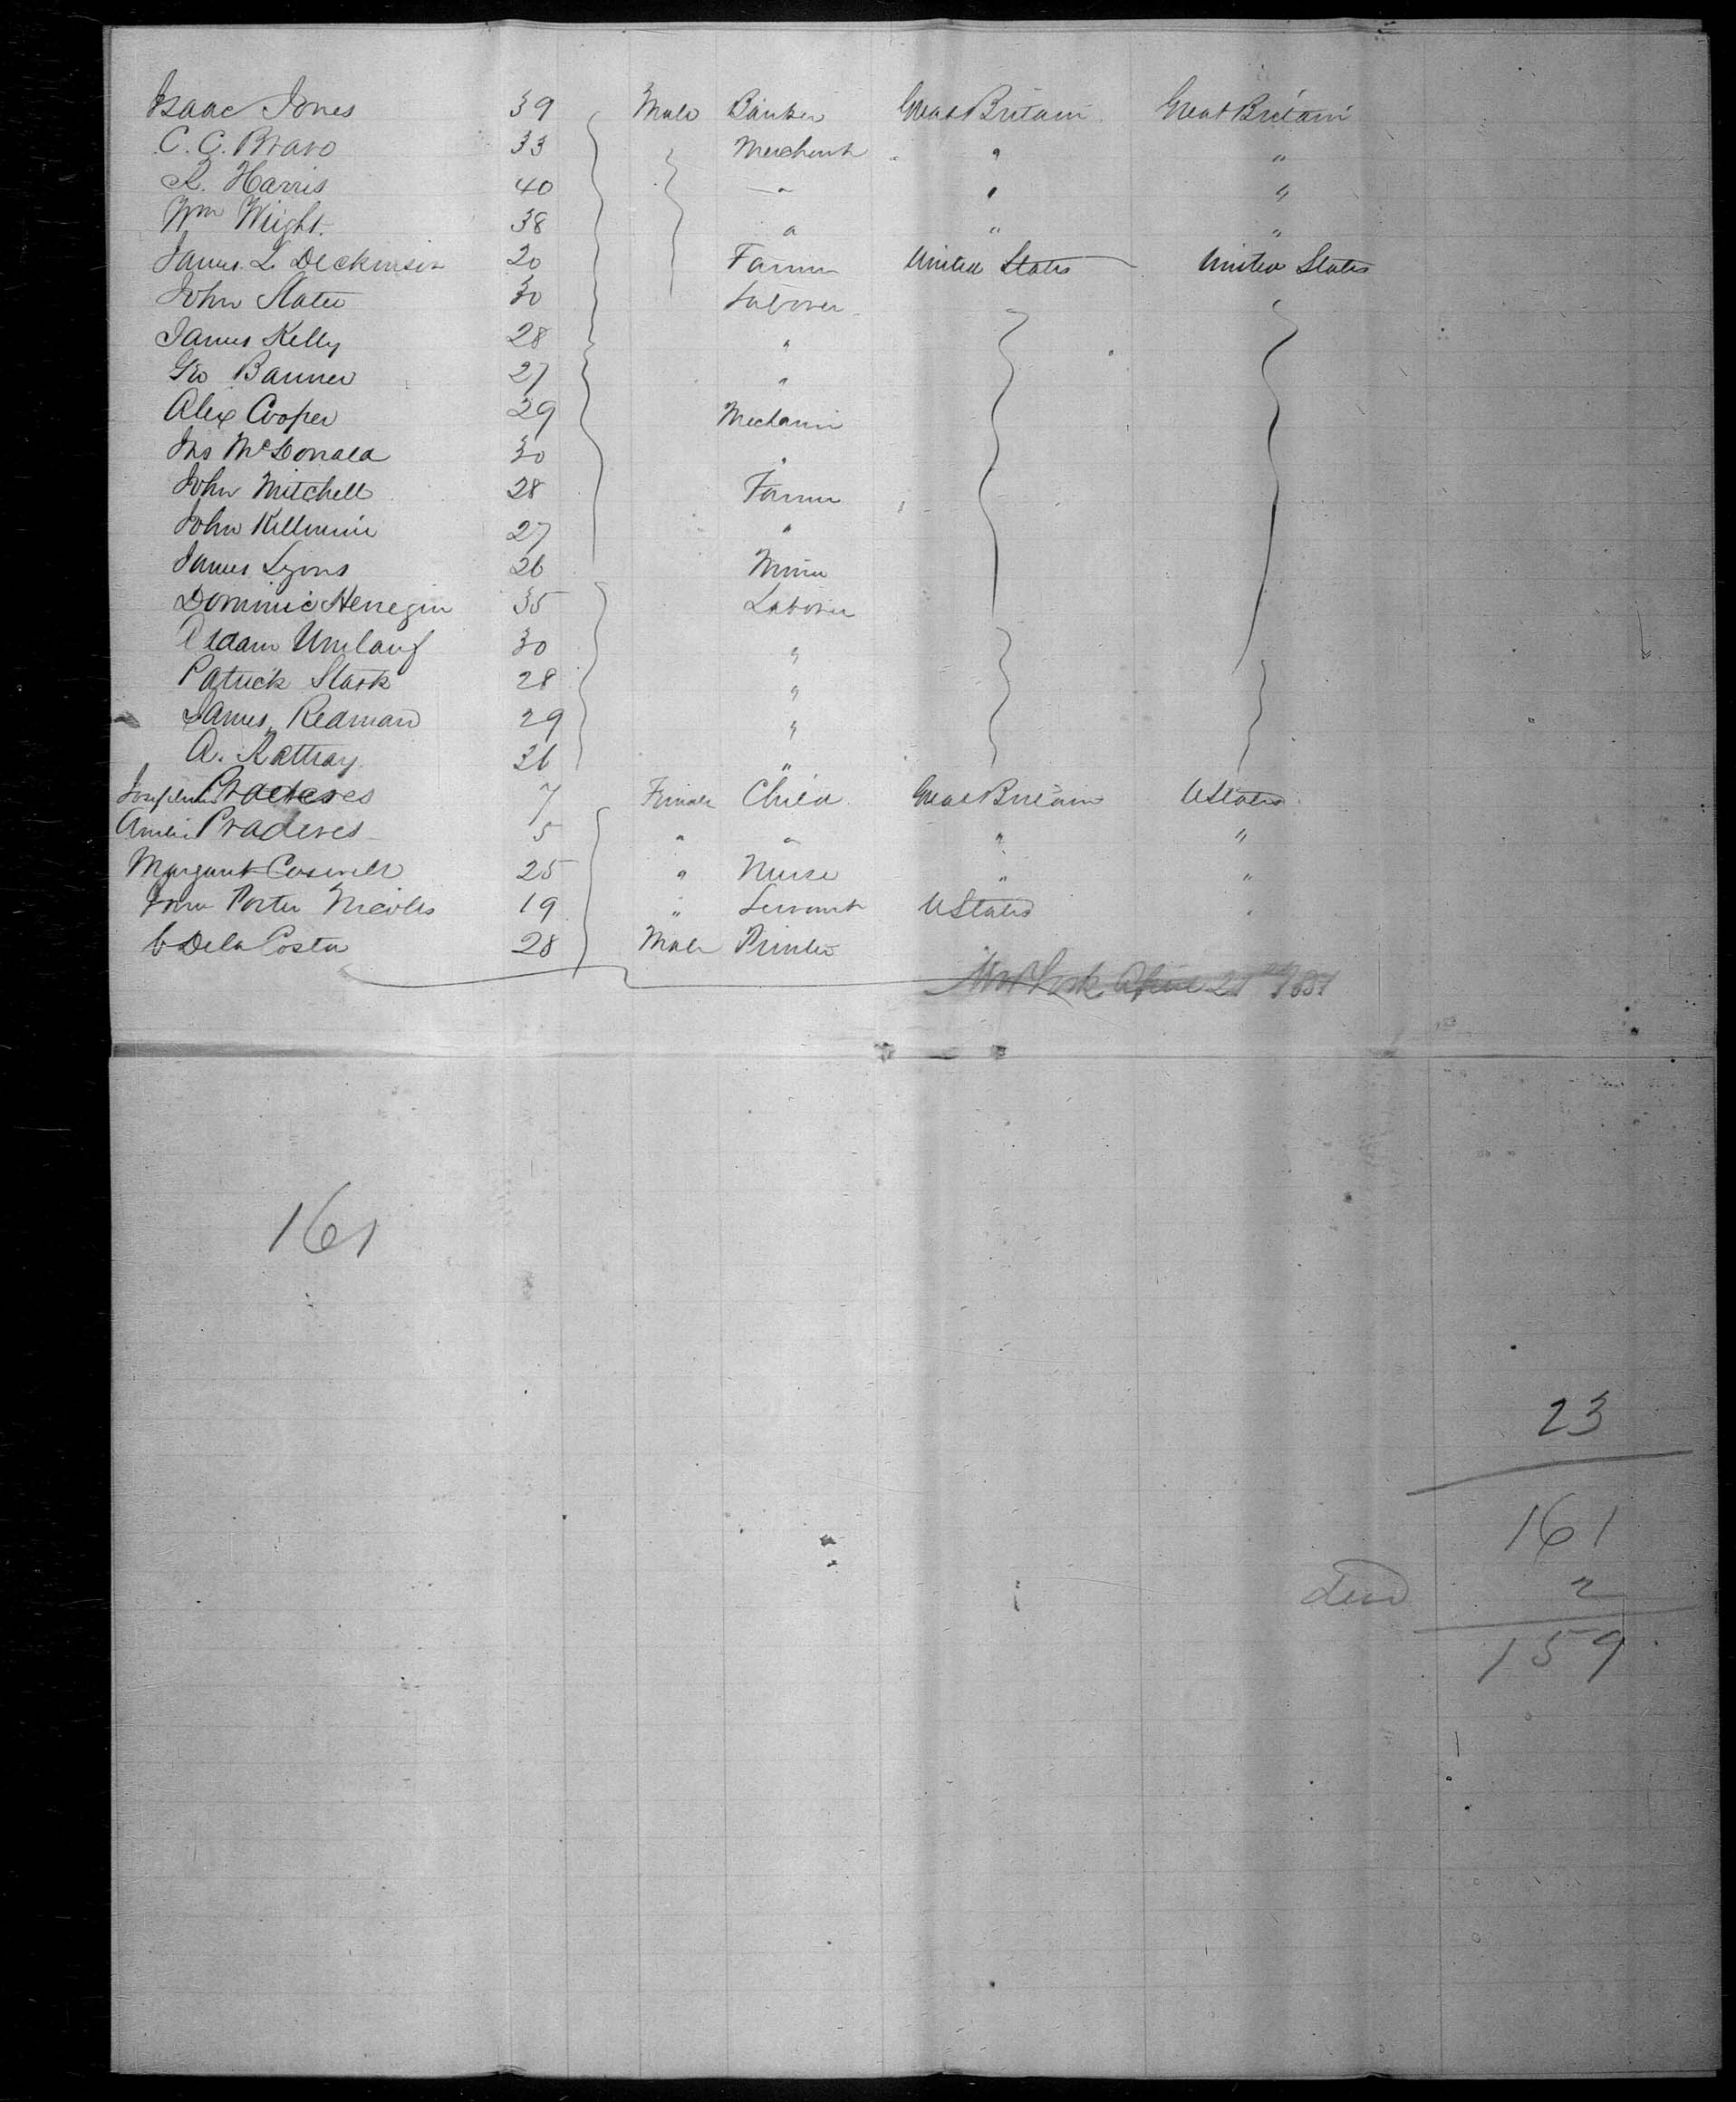 Isaac Jones 39 Male Banker Great Britain Great Britain
C. C. Bravo 33 Merchant " "
R. Harris 40 " " "
Wm Wright. 38 " " "
James L Deckinson 20 Farmer United States United States
John Slater 30 Laborer
James Kelly 28 "
Geo Banner 27 "
Alex Cooper 29 Mechanic
Jno McDonald 30 "
John Mitchell 28 Farmer
John 27 "
James Lyons 26 Miner
Dominic Henegin 35 Laborer
Adam Umlauf 30 "
Patrick Stark 28 "
James Redman 29 "
A. Rattray 36 "
Praderes 7 Female Child Great Britain UStates
Praderes 5 " " " "
Margaret 25 " Nurse " "
Porter 19 " Servant UStates "
De la Costa 28 Male Printer
New York April
161
23
161
2
159